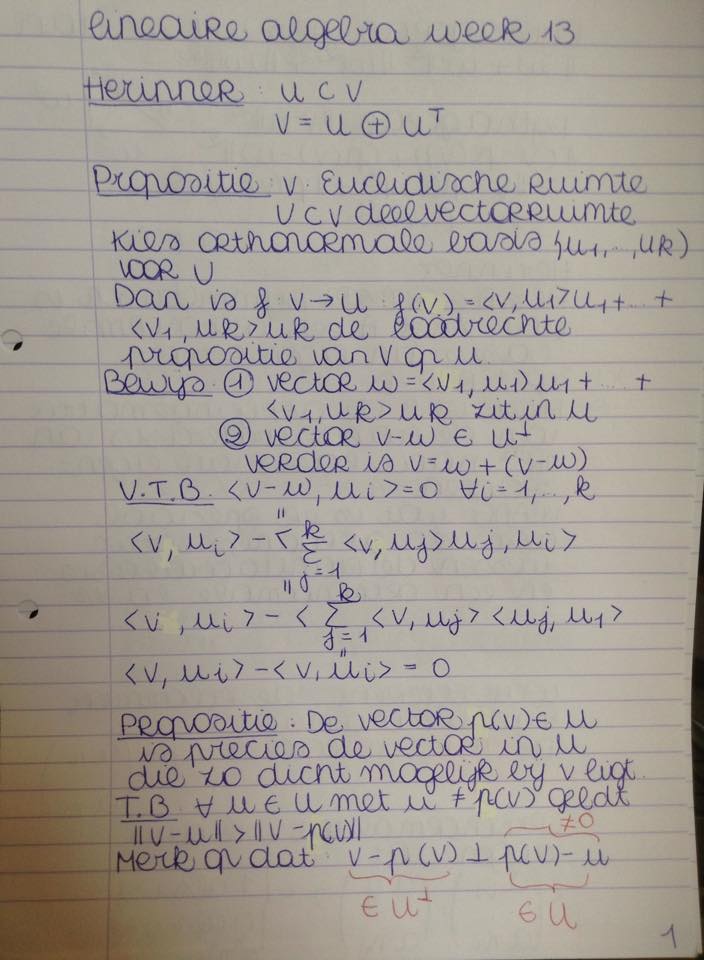 lineaire algebra week 13
Herinner: U ⊂ V
V = U ⊕ U^T
Propositie: V. Euclidische ruimte
U ⊂ V deelvectorruimte
Kies orthonormale basis {u1,...,uk)
voor U
Dan is f: V → U: f(v) = <v, u1>u1 + ... +
<v1, uk>uk de loodrechte
propositie van V op U.
Bewijs: ① vector w = <v1, u1>u1 + ... +
<v1, uk>uk zit in U
② vector v-w ∈ U^⊥
verder is v = w + (v-w)
V.T.B. <v-w, ui> = 0 ∀i = 1,...,k
"
<v, ui> - < k Σ j=1 <v, uj>uj, ui>
"
<v, ui> - < k Σ j=1 <v, uj> <uj, u1>
"
<v, ui> - <v, ui> = 0
Propositie: De vector p(v) ∈ U
is precies de vector in U
die zo dicht mogelijk bij v ligt.
T.B. ∀ u ∈ U met u ≠ p(v) geldt
||v-u|| > ||v-p(v)||
≠0
Merk op dat: v-p(v) ⊥ p(v)-u
∈ U^⊥ ∈ U
1